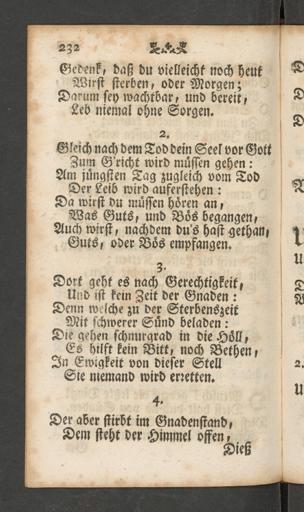 232
Gedenk, daß du vielleicht noch heut
Wirst sterben, oder Morgen;
Darum sey wachtbar, und bereit,
Leb niemal ohne Sorgen.
2.
Gleich nach dem Tod dein Seel vor Gott
Zum G'richt wird müssen gehen:
Am jüngsten Tag zugleich vom Tod
Der Leib wird auferstehen:
Da wirst du müssen hören an,
Was Guts, und Bös begangen,
Auch wirst, nachdem du's hast gethan,
Guts, oder Bös empfangen.
3.
Dort geht es nach Gerechtigkeit,
Und ist kein Zeit der Gnaden:
Denn welche zu der Sterbenszeit
Mit schwerer Sünd beladen:
Die gehen schnurgrad in die Höll,
Es hilft kein Bitt, noch Bethen,
In Ewigkeit von dieser Stell
Sie niemand wird erretten.
4.
Der aber stirbt im Gnadenstand,
Dem steht der Himmel offen,
Dieß